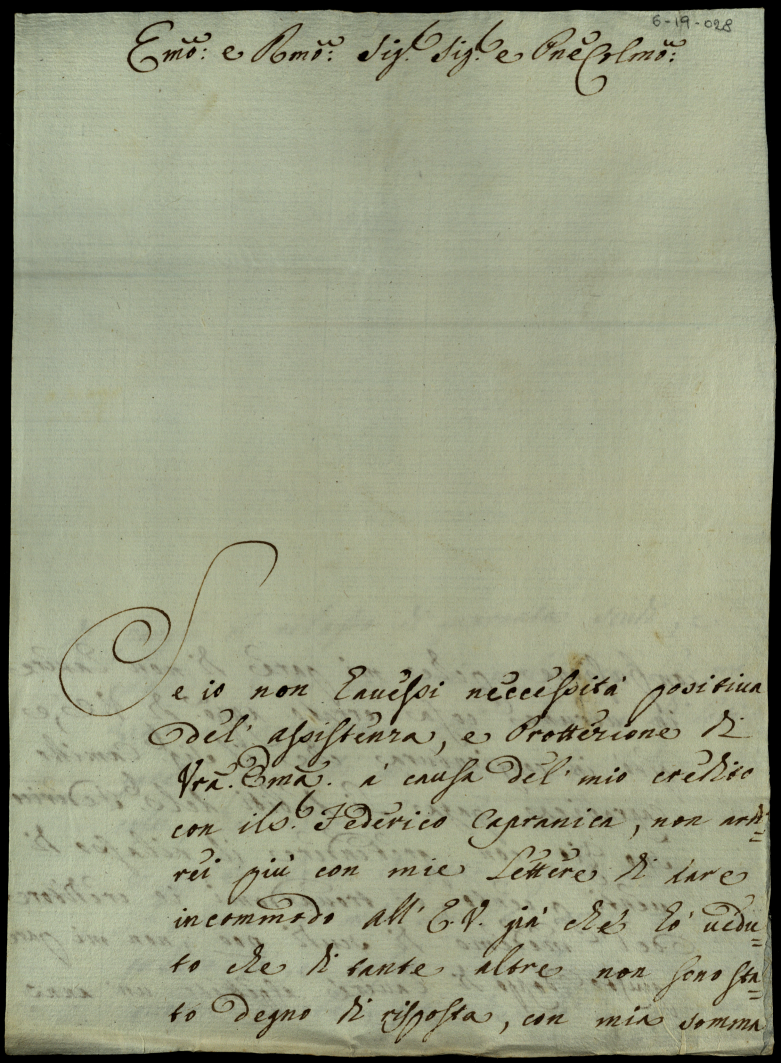 6-19-028
Emõ: e Rmõ: Sig.r Sig.r e Pnẽ Colmõ:
Se io non havessi neccessità positiva
del' assistenza, e Protterione di
Vrã. Emã. à causa del' mio credito
con il S.r Federico Capranica, non ardi=
rei più con mie Lettere di dare
incommodo all' E.V. già che hò vedu=
to che di tante altre non sono sta=
to degno di risposta, con mia somma